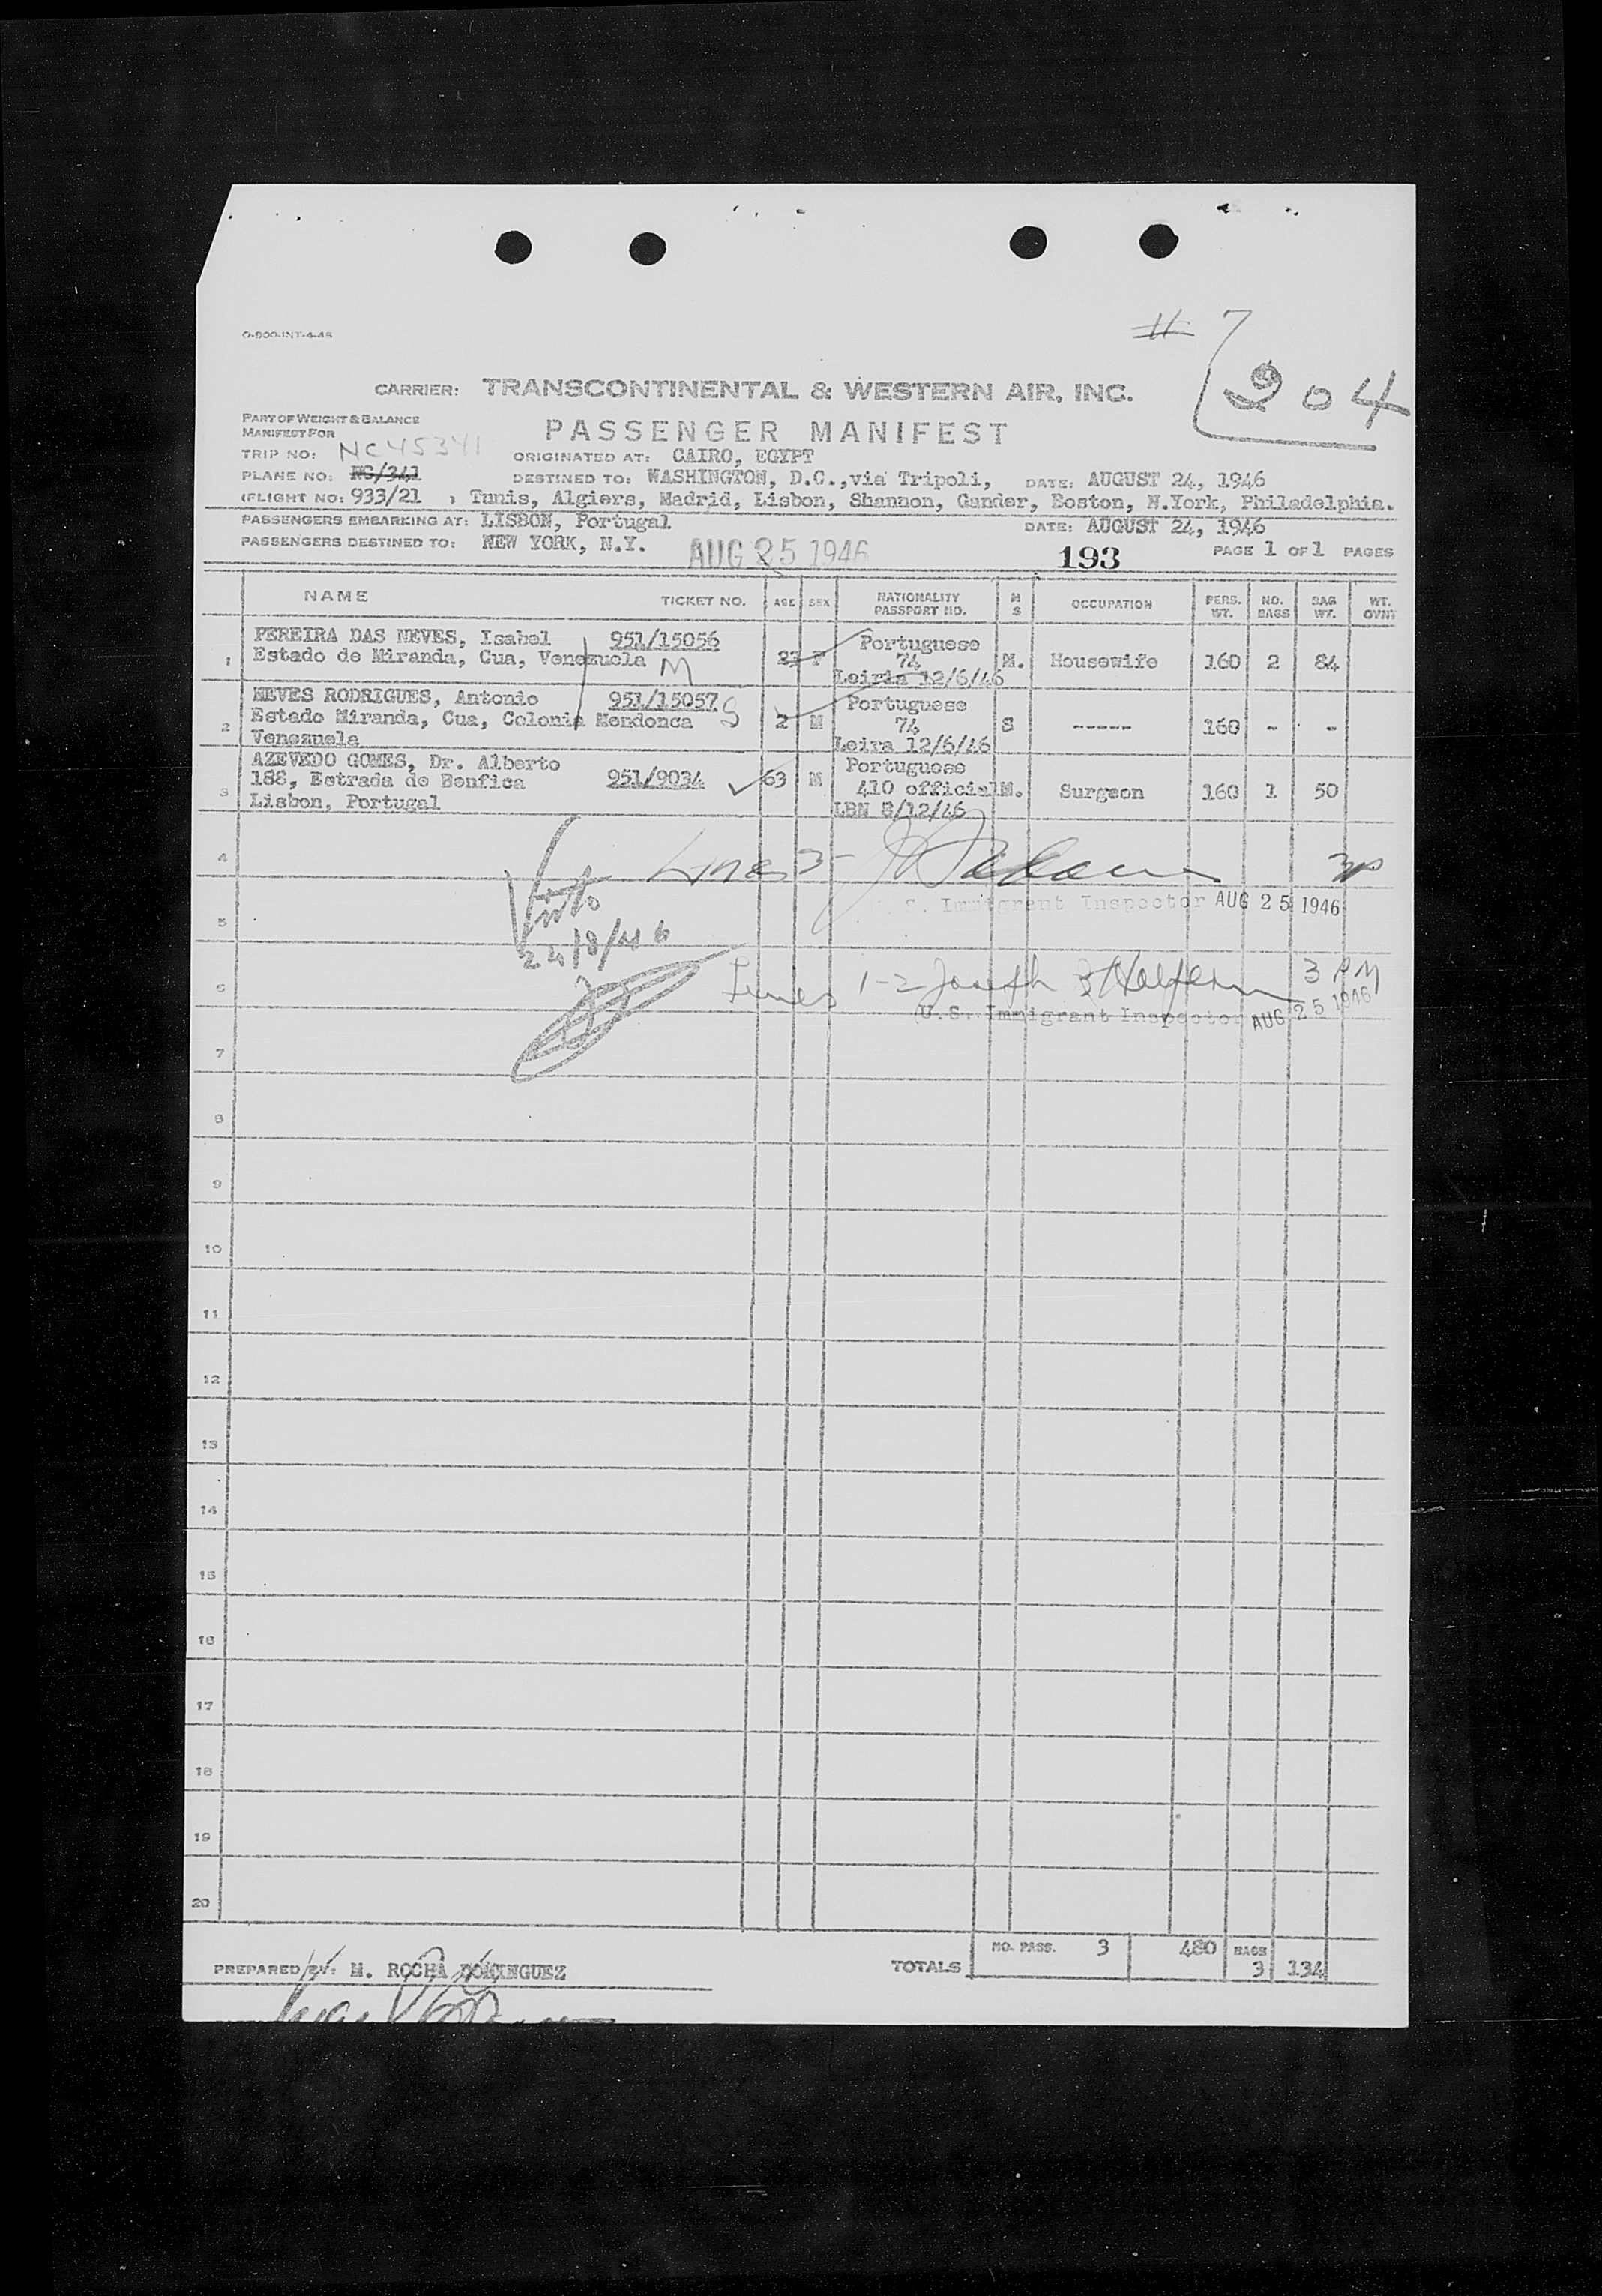 O-900-INT-4-46
# 7
204
CARRIER: TRANSCONTINENTAL & WESTERN AIR, INC.
PART OF WEIGHT & BALANCE
MANIFEST FOR
PASSENGER MANIFEST
TRIP NO: NC45341
ORIGINATED AT: CAIRO, EGYPT
PLANE NO: NC/341
DESTINED TO: WASHINGTON, D.C.,via Tripoli, DATE: AUGUST 24, 1946
(FLIGHT NO: 933/21 , Tunis, Algiers, Madrid, Lisbon, Shannon, Gander, Boston, N.York, Philadelphia.
PASSENGERS EMBARKING AT: LISBON, Portugal DATE: AUGUST 24, 1946
PASSENGERS DESTINED TO: NEW YORK, N.Y. AUG 25 1946 193 PAGE 1 OF 1 PAGES
NAME TICKET NO. AGE SEX NATIONALITY PASSPORT NO. M S OCCUPATION PERS. WT. NO. BAGS BAG WT. WT. OVNT
PEREIRA DAS NEVES, Isabel 951/15056 Portuguese
1 Estado de Miranda, Cua, Venezuela M 23 F 74 M. Housewife 160 2 84
Leiria 12/6/46
NEVES RODRIGUES, Antonio 951/15057 S Portuguese
2 Estado Miranda, Cua, Colonia Mendonca 2 M 74 S ----- 160 - -
Venezuela Leira 12/6/46
AZEVEDO GOMES, Dr. Alberto Portuguese
3 188, Estrada de Benfica 951/9034 63 M 410 official M. Surgeon 160 1 50
Lisbon, Portugal LBN 8/12/46
4
Line 3
S. Immigrant Inspector AUG 25 1946
5
Visto
24/8/46
6 Lines 1-2 Joseph 3 PM
(U.S. Immigrant Inspector AUG 25 1946
7
8
9
10
11
12
13
14
15
16
17
18
19
20
PREPARED BY: M. ROCHA DOMINGUEZ
TOTALS NO. PASS. 3 480 BAGS 3 134